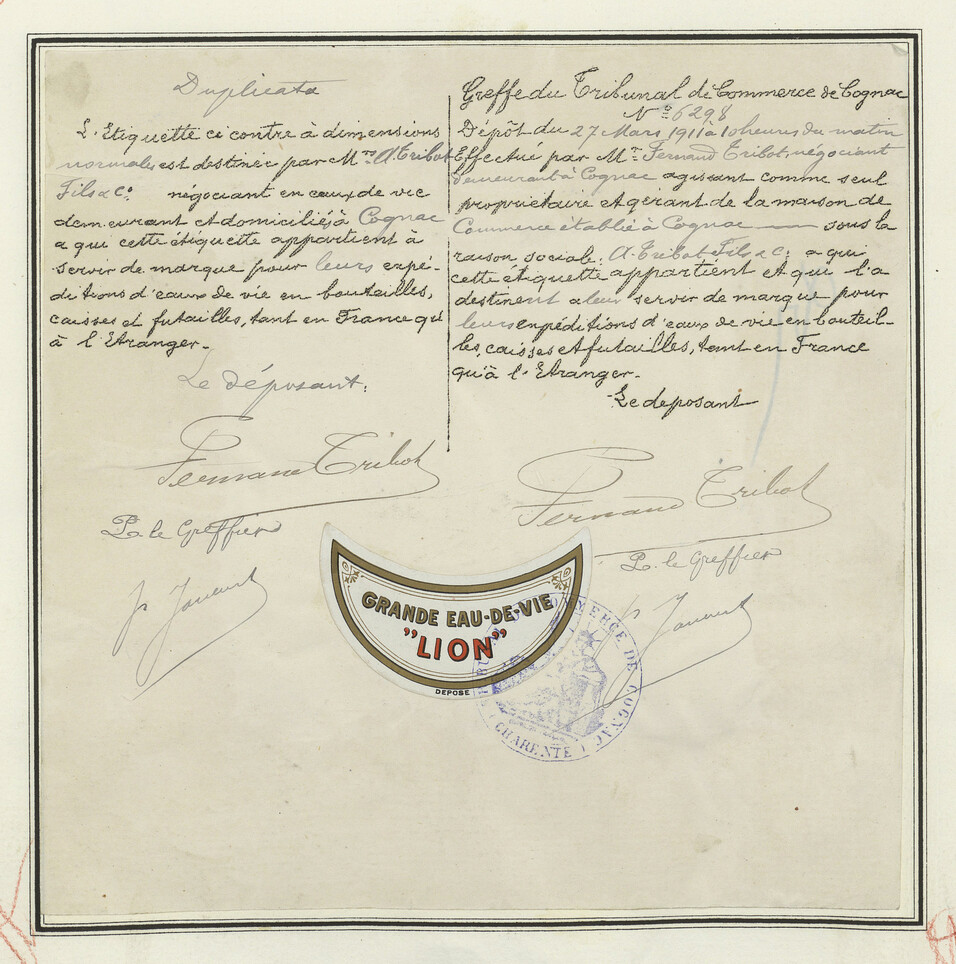 Duplicata
L'Etiquette ci contre à dimensions
normales est destinée par Mrs A. Tribot
Fils & Co négociant en eaux de vie
demeurant et domiciliés à Cognac
a qui cette étiquette appartient à
servir de marque pour leurs expé-
ditions d'eaux de vie en bouteilles,
caisses et futailles, tant en France qu'
à l'Etranger.-
Le déposant:
Fernand Tribot
P. le Greffier
Greffe du Tribunal de Commerce de Cognac
No 6298
Dépôt du 27 Mars 1911 à 10 heures du matin
Effectué par Mr Fernand Tribot, négociant
demeurant à Cognac agissant comme seul
propriétaire et gérant de la maison de
Commerce établie à Cognac — sous la
raison sociale: A. Tribot Fils & C. a qui
cette étiquette appartient et qui l'a
destinent a leur servir de marque pour
leurs expéditions d'eaux de vie en bouteil-
les, caisses et futailles, tant en France
qu'à l'Etranger.-
Le deposant
Fernand Tribot
P. le Greffier
GRANDE EAU-DE-VIE
"LION"
DEPOSE
TRIBUNAL DE COMMERCE DE COGNAC
(CHARENTE)